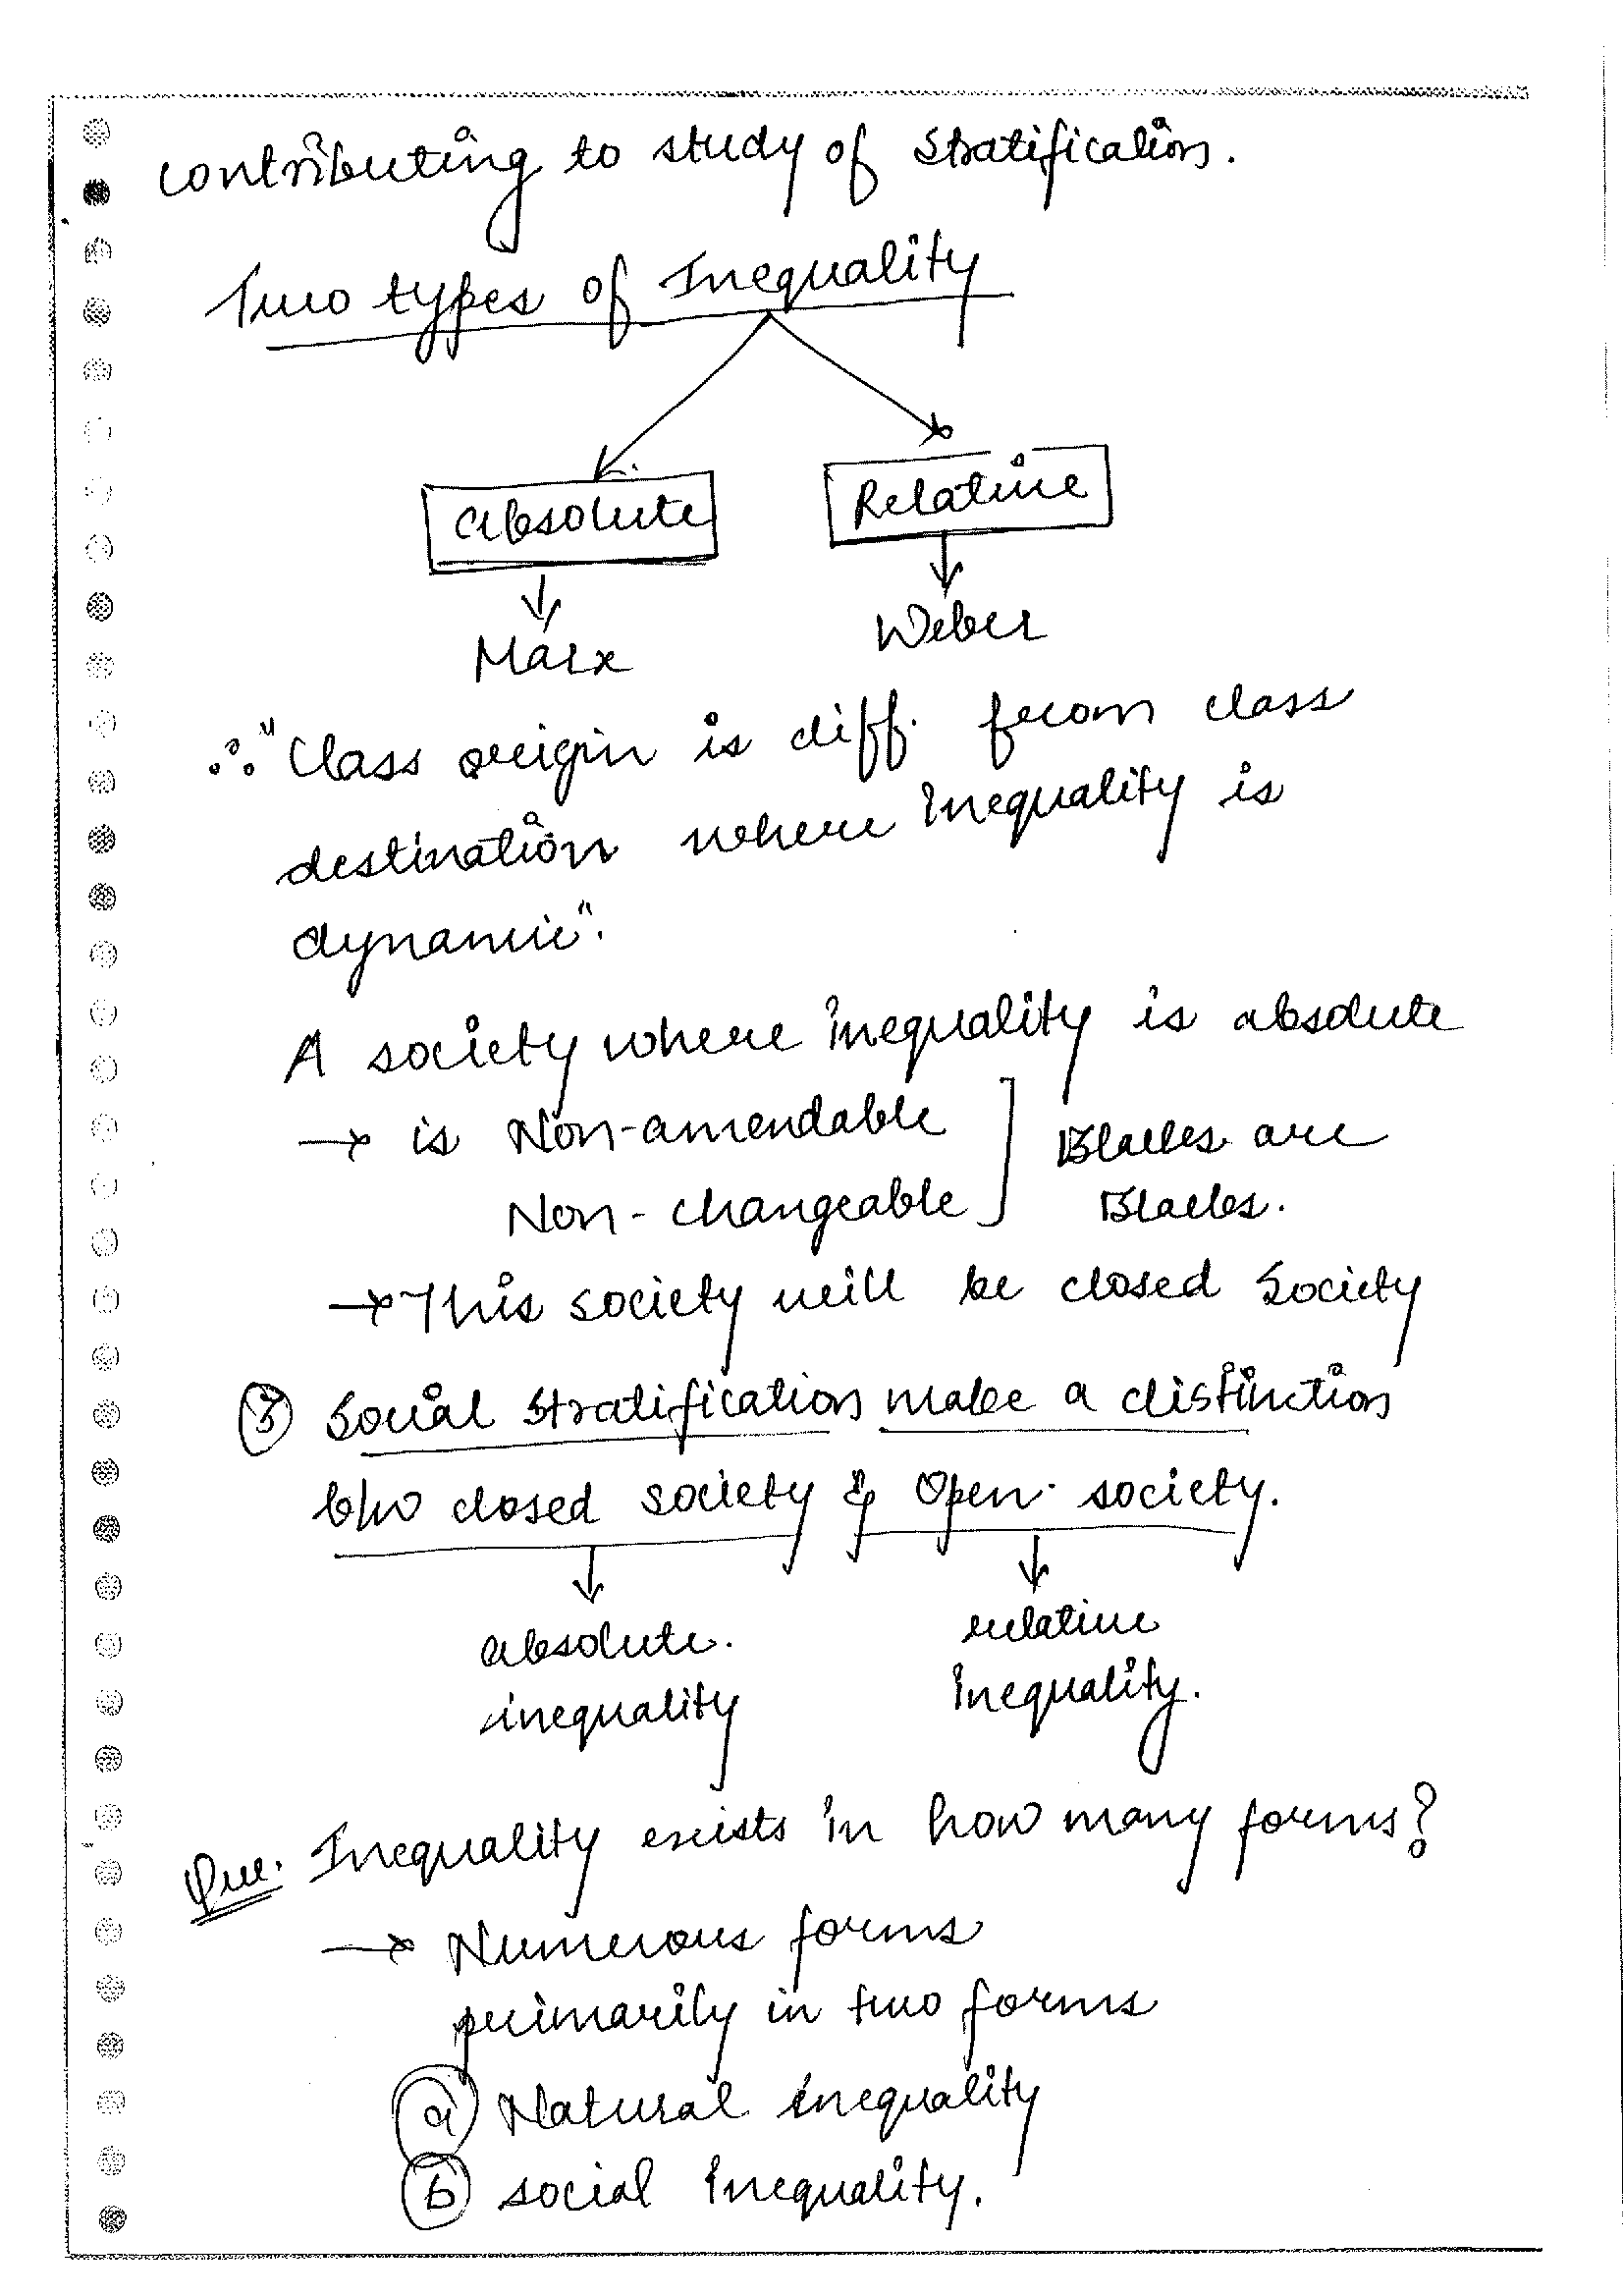 contributing to study of stratification.
Two types of Inequality
absolute
Relative
Marx
Weber
∴ "Class origin is diff. from class
destination where inequality is
dynamic".
A society where inequality is absolute
→ is Non-amendable
Non-changeable
Blacks are
Blacks.
→ This society will be closed society
③ Social stratification make a distinction
b/w closed society & Open society.
absolute
inequality
relative
inequality.
Que. Inequality exists in how many forms?
→ Numerous forms
primarily in two forms
ⓐ Natural inequality
ⓑ social Inequality.